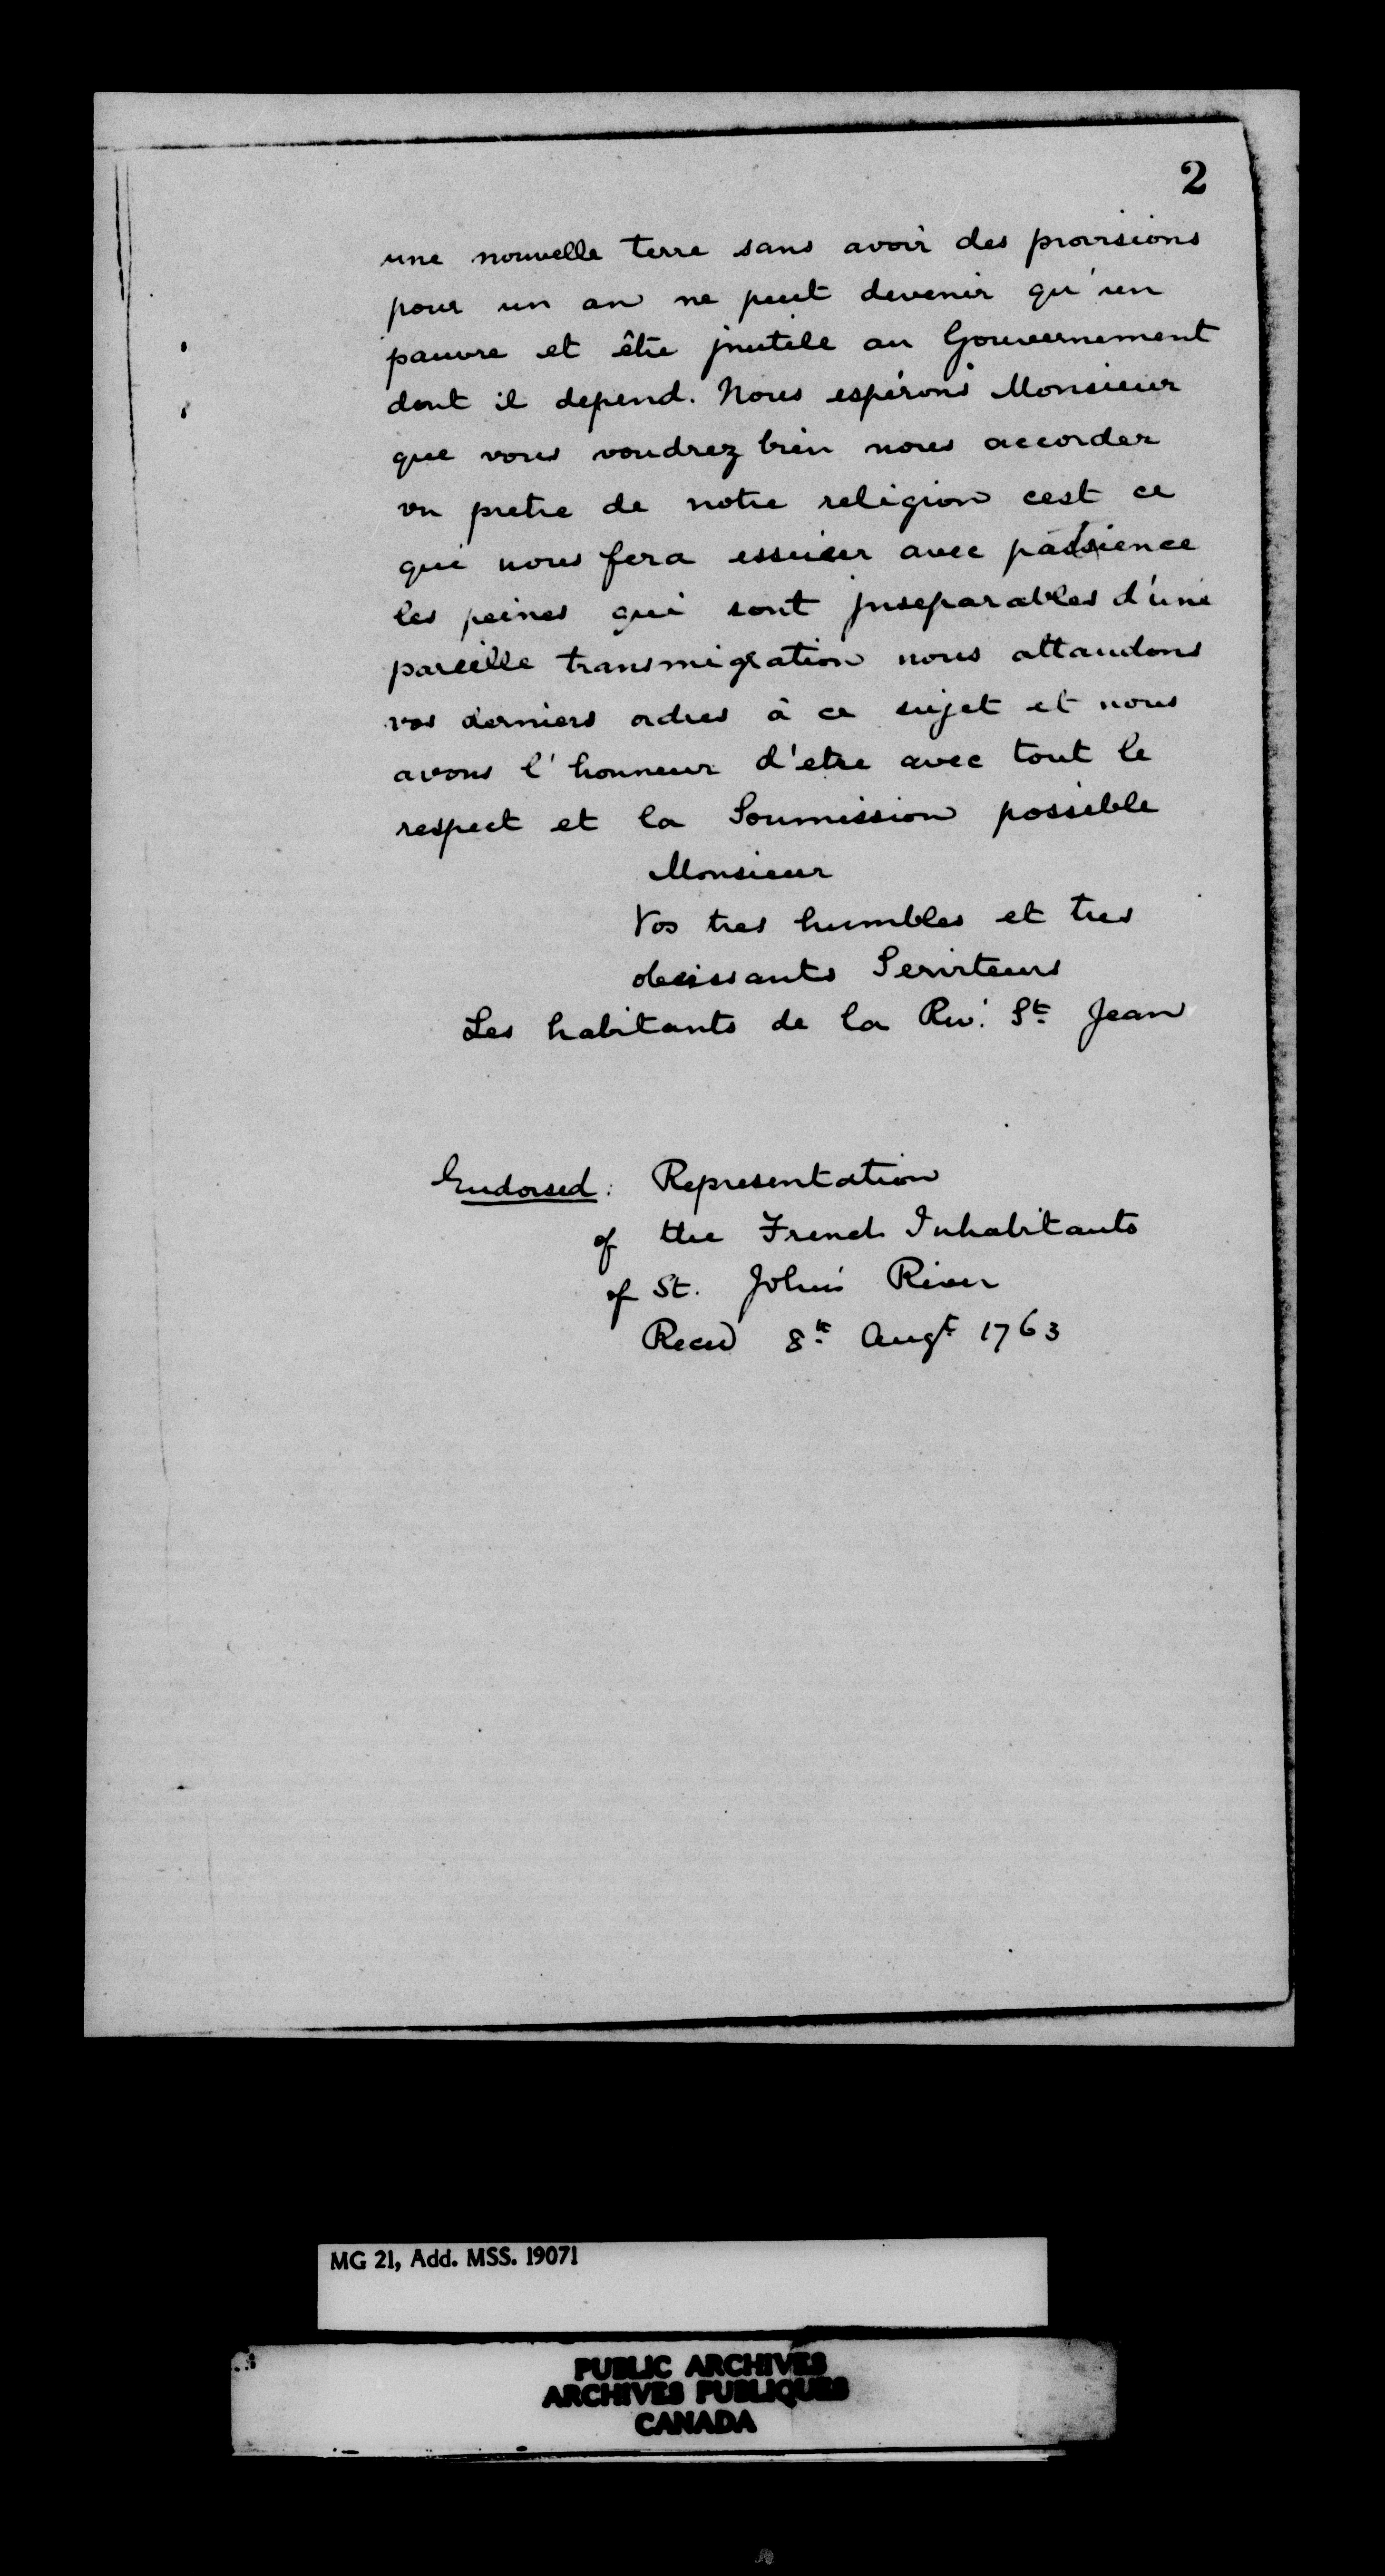 2
une nouvelle terre sans avoir des provisions
pour un an ne peut devenir qu'un
pauvre et être jnutile au Gouvernement
dont il depend. Nous espérons Monsieur
que vous voudrez bien nous accorder
un pretre de notre religion cest ce
qui nous fera essuier avec passience
les peines qui sont jnseparables d'une
pareille transmigration nous attandons
vos derniers ordres à ce sujet et nous
avons l'honneur d'etre avec tout le
respect et la Soumission possible
Monsieur
Vos tres humbles et tres
obeissants Serviteurs
Les habitants de la Riv. St. Jean
Endorsed: Representation
of the French Inhabitants
of St. John's River
Recd 8th Augt 1763
MG 21, Add. MSS. 19071
PUBLIC ARCHIVES
ARCHIVES PUBLIQUES
CANADA